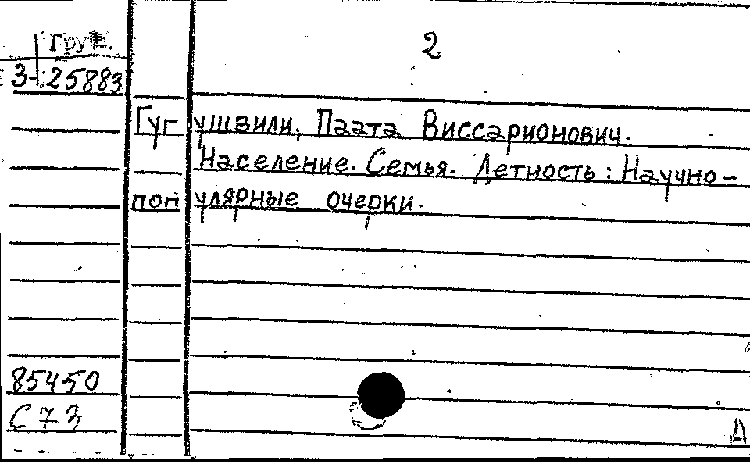 Груз. 2
3-25883
Гугушвили, Паата Виссарионович.
Население. Семья. Детность: Научно-
популярные очерки.
85450
С73
Д